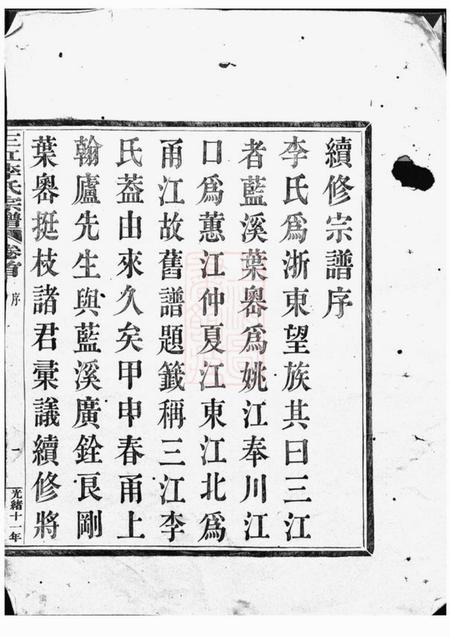 續修宗譜序
李氏爲浙東望族其曰三江
者藍溪葉嶴爲姚江奉川江
口爲蕙江仲夏江東江北爲
甬江故舊譜題籤稱三江李
氏葢由來久矣甲申春甬上
翰廬先生與藍溪廣銓艮剛
葉嶴挺枝諸君彙議續修將
三江李氏宗譜 卷首 序 一 光緒十一年